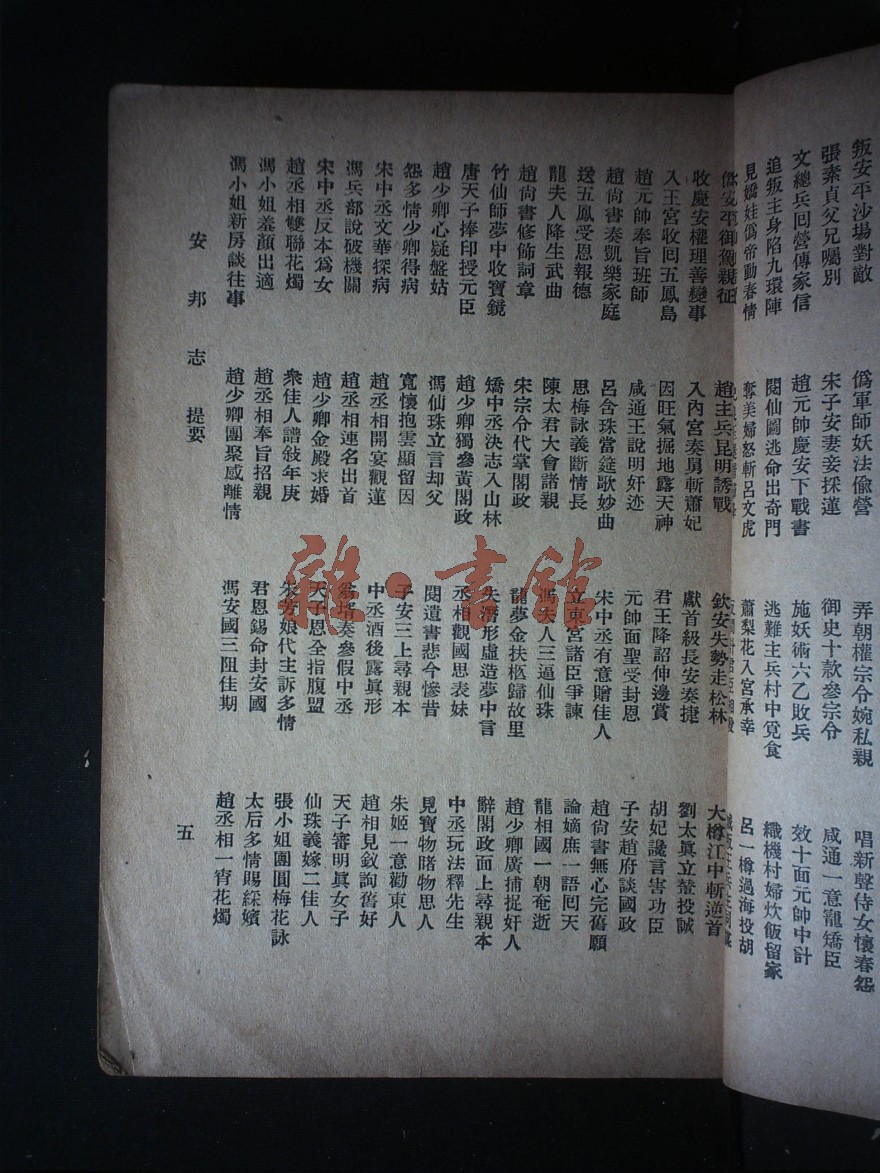 叛安平沙場對敵 偽軍師妖法偷營 弄朝權宗令婉私親 唱新聲侍女懷春怨
張素貞父兄囑別 宋子安妻妾採蓮 御史十款參宗令 咸通一意寵矯臣
文總兵回營傳家信 趙元帥慶安下戰書 施妖術六乙敗兵 效十面元帥中計
追叛主身陷九環陣 閱仙圖逃命出奇門 逃難主兵村中覓食 織機村婦炊飯留家
見嬌娃偽帝動春情 奪美婦怒斬呂文虎 蕭梨花入宮承幸 呂一樽過海投胡
安平御駕親征 趙主兵昆明誘戰 欽安失勢走松林 大樽江中斬逆首
收慶安權理善變事 入內宮奏舅斬蕭妃 獻首級長安奏捷 劉太眞立螫投誠
入王宮收回五鳳島 因旺氣掘地露天神 君王降詔伸邊賞 胡妃讒言害功臣
趙元帥奉旨班師 咸通王說明奸迹 元帥面聖受封恩 子安趙府談國政
趙尙書奏凱樂家庭 呂含珠當筵歌妙曲 宋中丞有意贈佳人 趙尙書無心完舊願
送五鳳受恩報德 思梅詠義斷情長 立東宮諸臣爭諫 論嫡庶一語回天
龍夫人降生武曲 陳太君大會諸親 馮夫人三逼仙珠 龍相國一朝奄逝
趙尙書修飾詞章 宋宗令代掌閣政 龍夢金扶柩歸故里 趙少卿廣捕捉奸人
竹仙師夢中收寶鏡 矯中丞決志入山林 失潛形虛造夢中言 辭閣政面上尋親本
唐天子捧印授元臣 趙少卿獨參黃閣政 丞相觀國思表妹 中丞玩法釋先生
趙少卿心疑盤姑 馮仙珠立言却父 閱遺書悲今慘昔 見寶物睹物思人
怨多情少卿得病 寬懷抱雲顯留因 子安三上尋親本 朱姬一意勸東人
宋中丞文華探病 趙丞相開宴觀蓮 中丞酒後露眞形 趙相見釵詢舊好
馮兵部說破機關 趙丞相連名出首 翁壻奏參假中丞 天子審明眞女子
宋中丞反本爲女 趙少卿金殿求婚 天子恩全指腹盟 仙珠義嫁二佳人
趙丞相雙聯花燭 衆佳人譜敍年庚 朱芳娘代主訴多情 張小姐團圓梅花詠
馮小姐羞顏出適 趙丞相奉旨招親 君恩錫命封安國 太后多情賜綵嬪
馮小姐新房談往事 趙少卿團聚感離情 馮安國三阻佳期 趙丞相一宵花燭
安邦志 提要 五
雜·書館